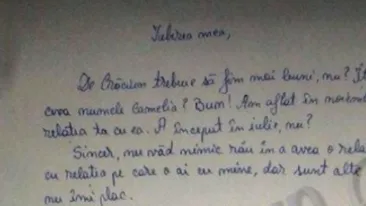 Iubirea mea,
De Crăciun trebuie să fim mai buni, nu? Îț
ceva numele Camelia? Bun! Am aflat în
relația ta cu ea. A început în iulie, nu?
Sincer, nu văd nimic rău în a avea o rela
cu relația pe care o ai cu mine, dar sunt alte
nu îmi plac.